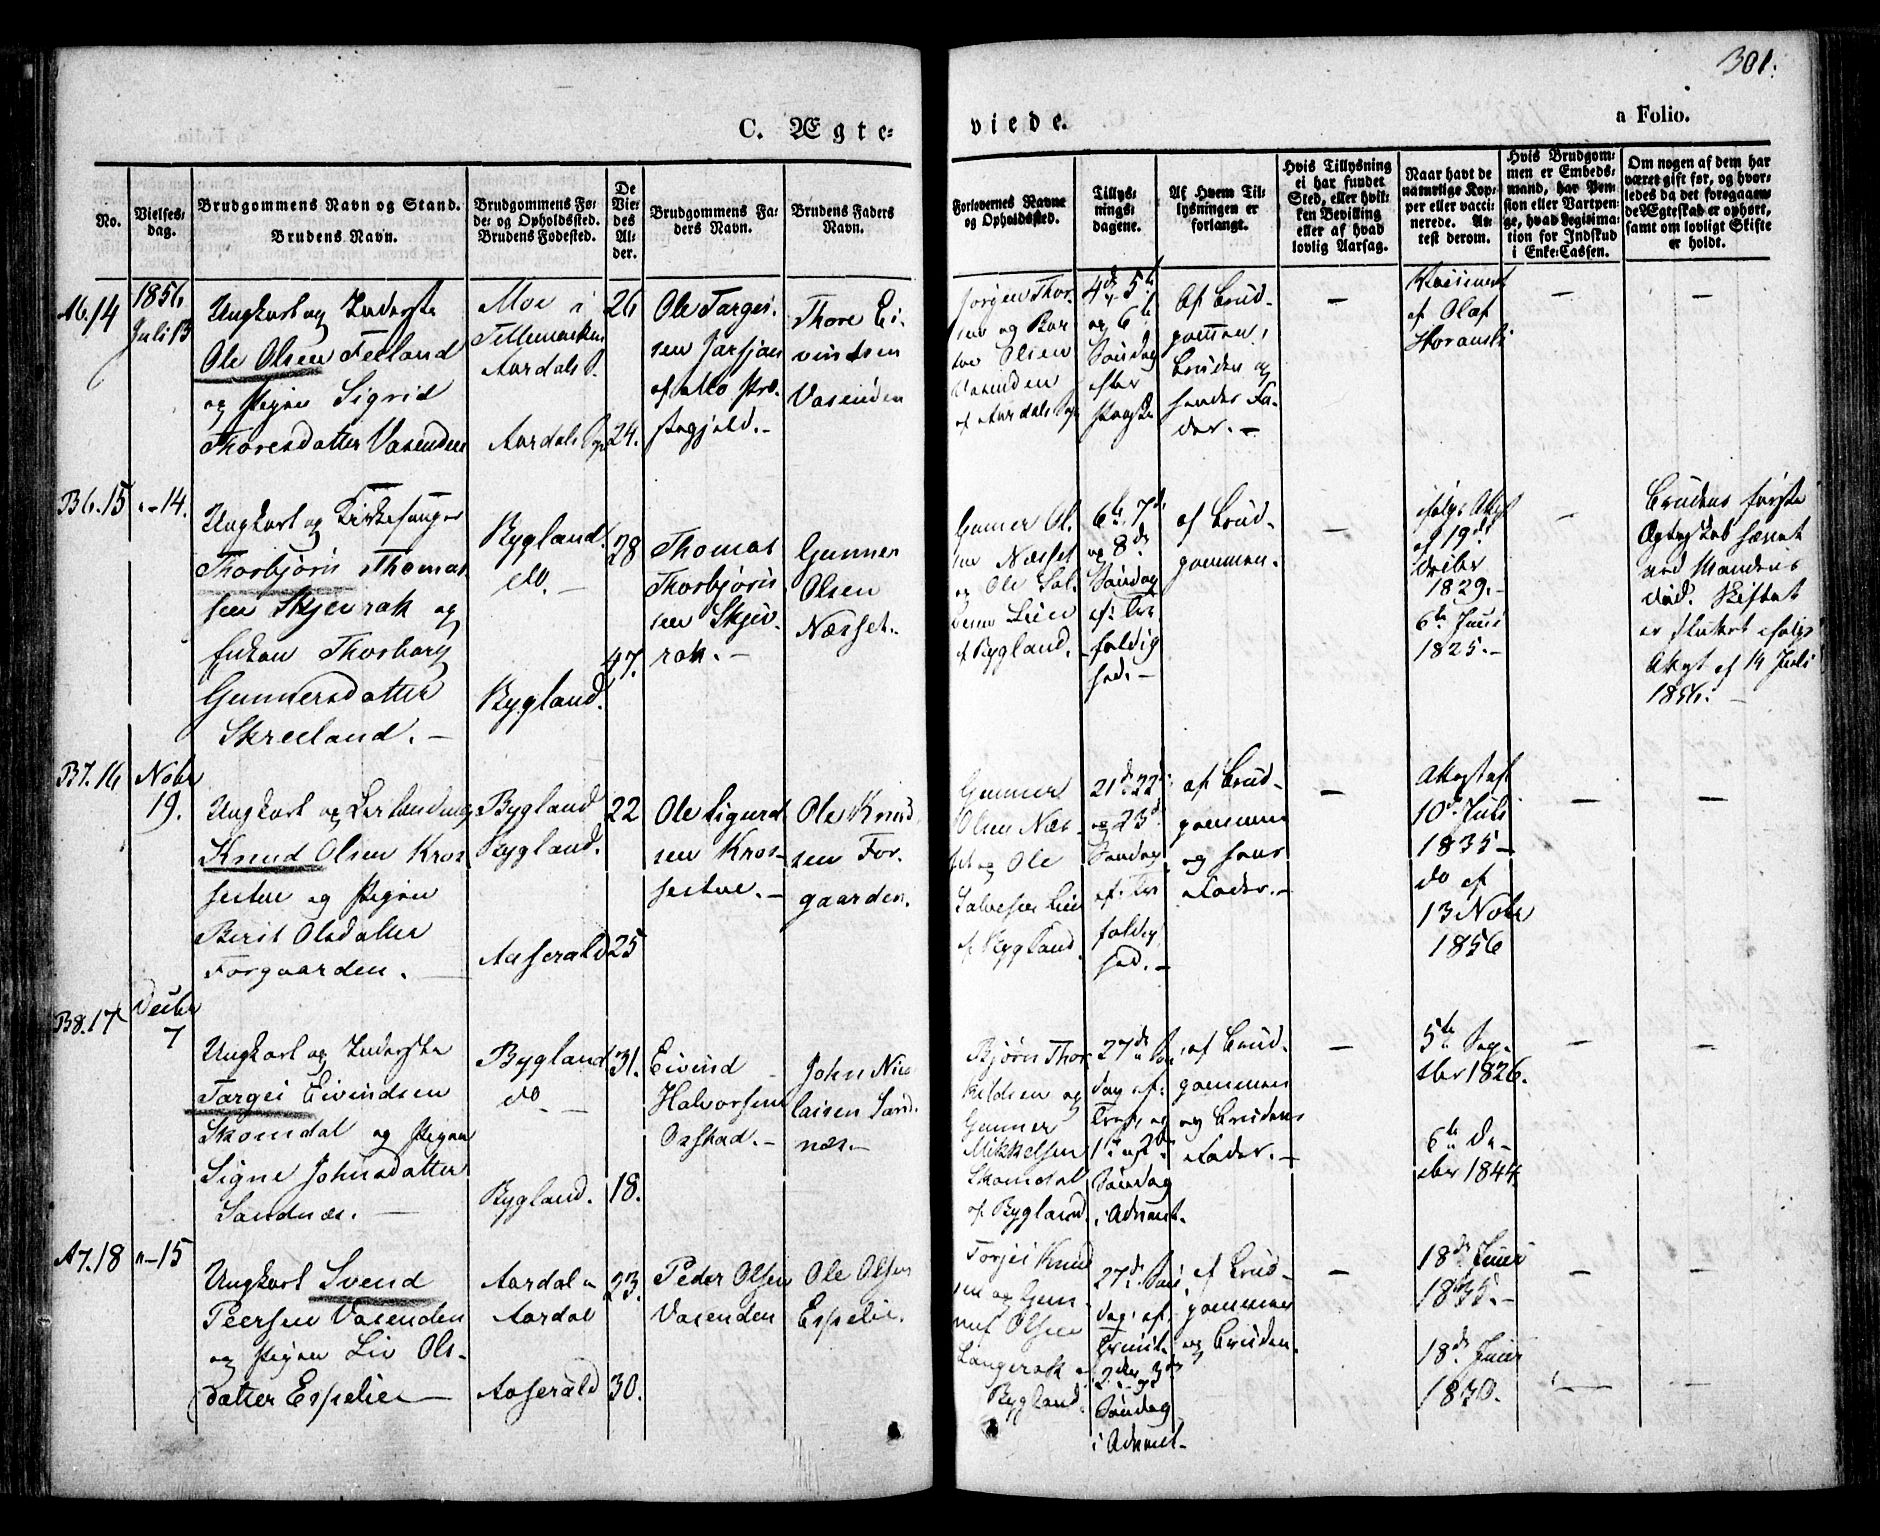 301.
C. Ægte=
viede.
a Folio.
No.
Vielses=
dag.
Brudgommens Navn og Stand.
Brudens Navn.
Brudgommens Fø=
de= og Opholdssted.
Brudens Fødested.
De
Vie=
des
Al=
der.
Brudgommens Fa=
ders Navn.
Brudens Faders
Navn.
Forlovernes Navne
og Opholdssted.
Tillys=
nings=
dagene.
Af Hvem Til=
lysningen er
forlangt.
Hvis Tillysning
ei har fundet
Sted, eller hvil=
ken Bevilling
eller af hvad
lovlig Aarsag.
Naar havt de
naturlige Kop=
per eller vacci=
nerede. At=
test derom.
Hvis Brudgom=
men er Embeds=
mand, har Pen=
sion eller Vartpen=
ge, hvad Legitima=
tion for Indskud
i Enke=Cassen.
Om nogen af dem har
været gift før, og hvor=
ledes da det foregaaen=
de Ægteskab er ophørt,
samt om lovligt Skifte
er holdt.
A6.14
1856
Juli 13
Ungkarl og Inderste
Ole Olsen Felland
og Pigen Sigrid
Thoresdatter Vasenden
Moe i
Tellemarken
Aardals S.
Aardals Sogn
26
24.
Ole Targei-
sen
af Mo Præ-
stegjeld.-
Thore Ei-
vindsen
Vasenden
Jørgen Thor-
sen og
Olsen
Vasenden
af Aardals Sogn
4de 5te
og 6te
Søndag
efter
Paaske
Af Brud-
gommen,
Bruden og
hendes Fa-
der.-
af Olaf
B6.15
"-14.
Ungkarl og Kirkesanger
Thorbjørn Thomas-
sen Skjevrak og
Enken Thorborg
Gunnersdatter
Skreeland.-
Bygland.
do.-
Bygland.
28
47.
Thomas
Thorbjørn
sen Skjev-
rak.-
Gunner
Olsen
Næsset.
Gunner Ol-
sen Næsset
og Ole Sal-
vesen Lien
af Bygland.
6te, 7de
og 8de
Søndag
ef: Tre-
foldig
hed.-
af Brud-
gommen.
ifølge Attest
af 19de
Octbr
1829.-
6te Juni
1825.-
Brudens første
Ægteskab hævet
ved Mandens
Død. Skiftet
er sluttet ifølge
Attest af 14 Juli
1856.-
B7.16
Novbr
19.
Ungkarl og
Knud Olsen Kros-
sestue og Pigen
Berit Olsdatter
Forgaarden.-
Bygland
Bygland.
Aaserald
22
25
Ole Sigurd
sen Kros-
sestue.-
Ole Knud
sen For-
gaarden.
Gunner
Olsen Næs-
set og Ole
Salvesen Lien
af Bygland.
21de 22de
og 23de
Søndag
ef: Tre
foldig
hed.-
af Brud-
gommen
og hans
Fader.-
Attest af
10de Juli
1835-
do af
13 Novbr
1856
B8.17
Decbr
7
Ungkarl og Inderste
Targei Eivindsen
Skomdal og Pigen
Signe Johnsdatter
Sandnæs.-
Bygland
do-
Bygland.
31.
18.
Eivind
Halvorsen
Ousstad.-
John Nico-
laisen Sand-
næs.-
Bjørn Thor-
kildsen og
Gunner
Mikkelsen
Skomdal
af Bygland.
27de Søn-
dag ef:
Tref. og
1ste og 2den
Søndag
i Advent.
af Brud-
gommen
og Brudens
Fader.-
5te Sep-
tbr 1826.
6te De-
cbr 1844
A7.18
"-15
Ungkarl Svend
Peersen Vasenden
og Pigen Liv Ols-
datter Espelien-
Aardal
Aardal
Aaserald
23.
30.
Peder Olsen
Vasenden
Ole Olsen
Espelie.
Torjei Knud
sen og Gun-
nuf Olsen
Langerak af
Bygland.
27de Søn-
dag ef.
Trinit.
2den og 3de
Søndag
i Advent-
af Brud-
gommen
og Bruden.
18de Juni
1835.-
18de Juni
1830.